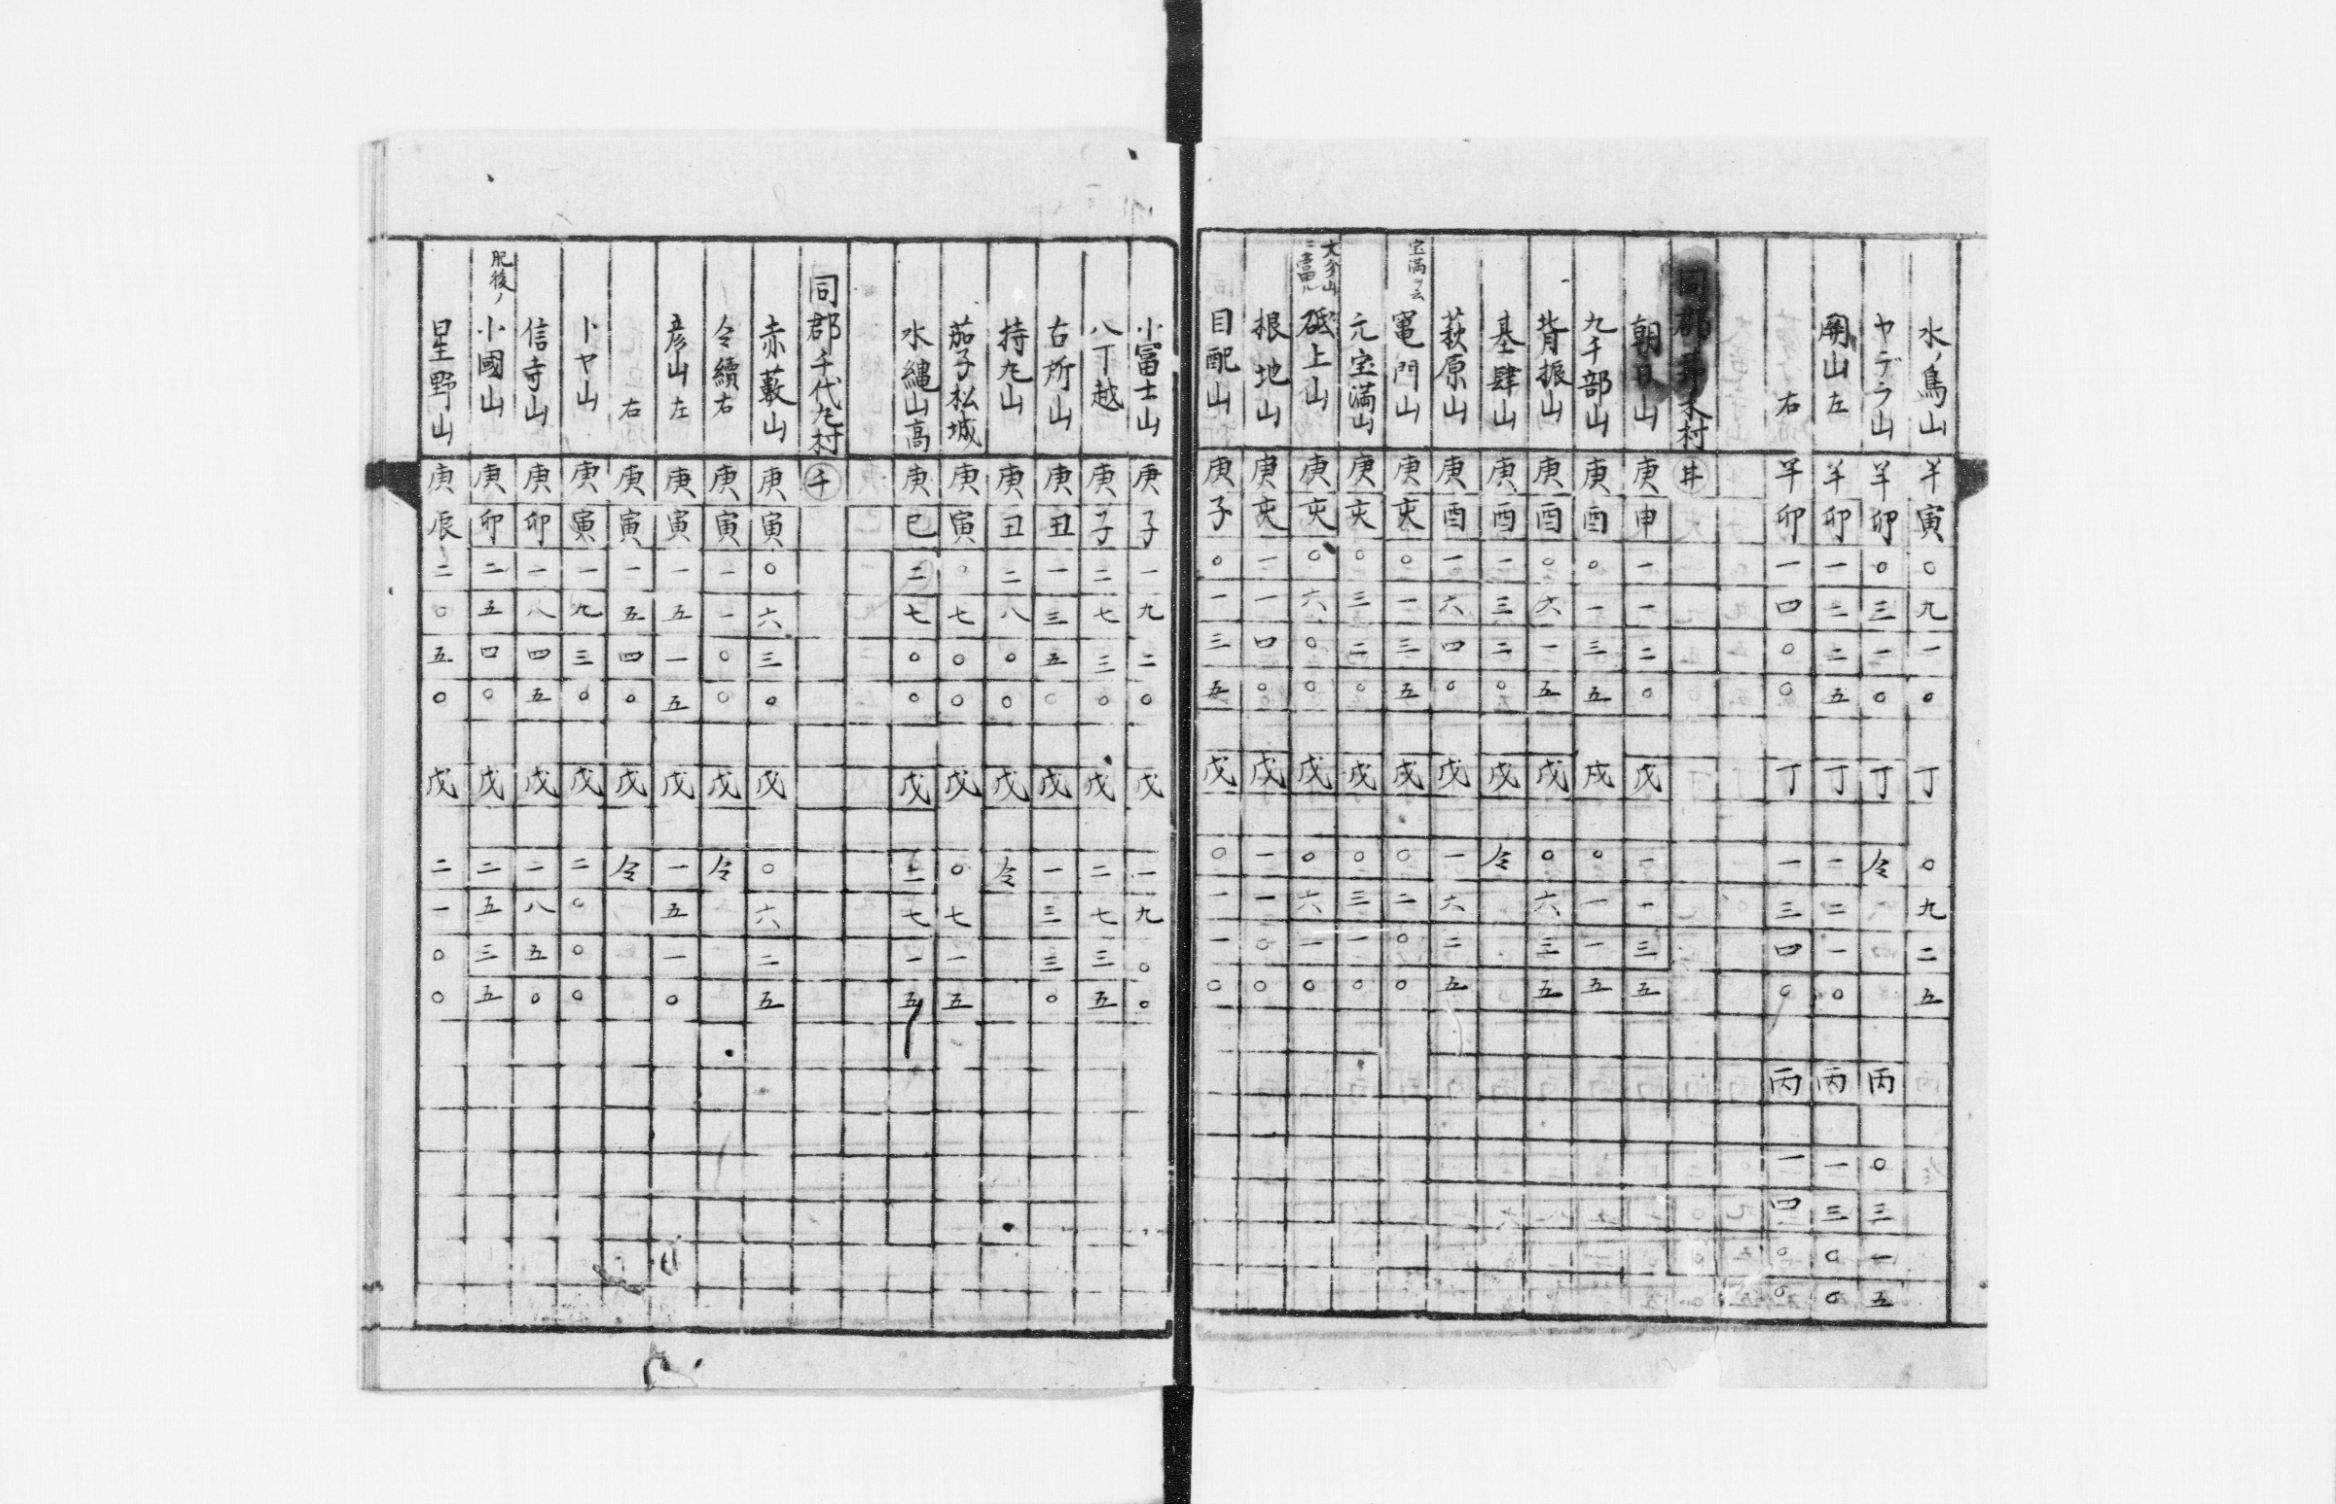 水ノ鳥山 羊寅〇九一〇 丁 〇九二五
ヤデラ山 羊卯〇三一〇 丁 仝 丙 〇三一五
開山左 羊卯一二二五 丁 二二一〇 丙 一三〇〇
右 羊卯一四〇〇 丁 一三四〇 丙 一四〇〇
同郡 木村 井
朝日山 庚申一一二〇 戊 一一三五
九千部山 庚酉〇一三五 戊 〇一一五
背振山 庚酉〇六一五 戊 〇六三五
基肄山 庚酉二三二〇 戊 仝
萩原山 庚酉一六四〇 戊 一六二五
宝満ト云
竃門山 庚亥〇一三五 戊 〇二〇〇
元宝満山 庚亥〇三二〇 戊 〇三一〇
砥上山 庚亥〇六〇〇 戊 〇六一〇
根地山 庚亥二一四〇 戊 二一〇〇
目配山 庚子〇一三五 戊 〇一一〇
小富士山 庚子一九二〇 戊 一九〇〇
八丁越 庚子二七三〇 戊 二七三五
古所山 庚丑一三五〇 戊 一三三〇
持丸山 庚丑二八〇〇 戊 仝
茄子松城 庚寅〇七〇〇 戊 〇七一五
水縄山高 庚巳二七〇〇 戊 二七一五
同郡千代丸村 千
赤藪山 庚寅〇六三〇 戊 〇六二五
仝續右 庚寅一一〇〇 戊 仝
彦山左 庚寅一五一五 戊 一五一〇
右 庚寅一五四〇 戊 仝
トヤ山 庚寅一九三〇 戊 二〇〇〇
信寺山 庚卯一八四五 戊 二八五〇
肥後ノ
小國山 庚卯二五四〇 戊 二五三五
星野山 庚辰二〇五〇 戊 二一〇〇